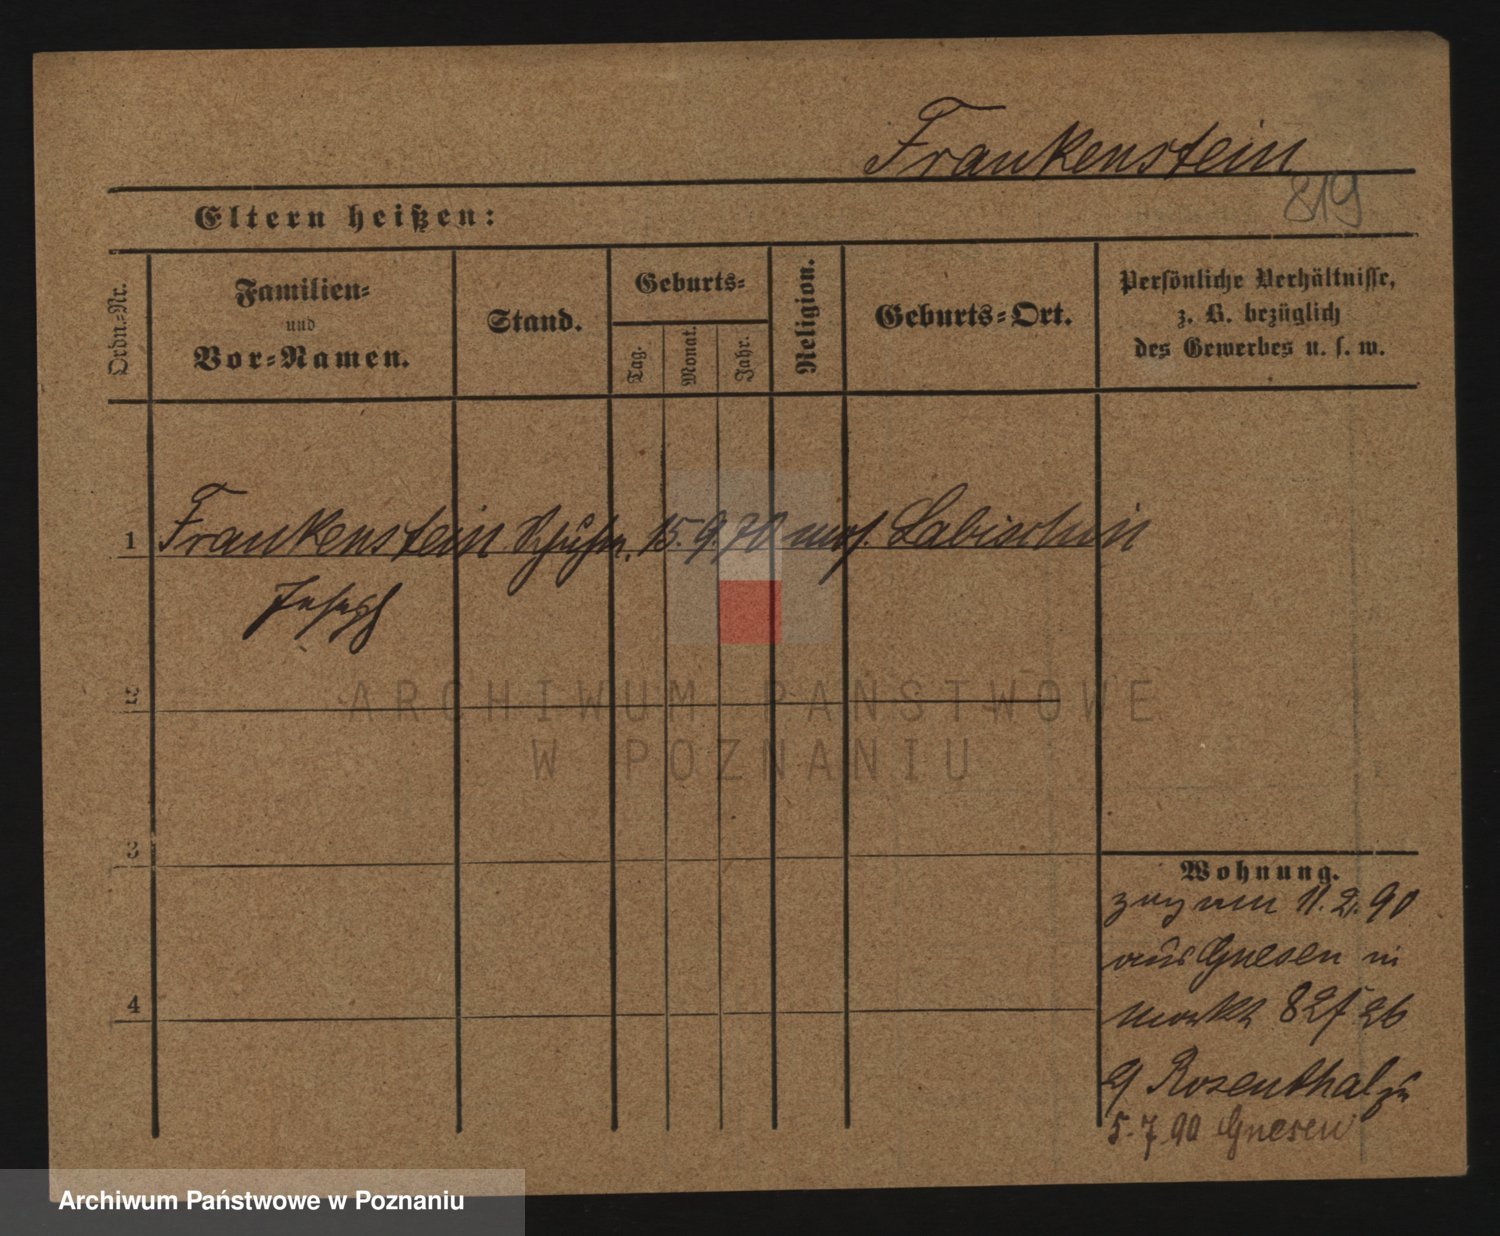 Frankenstein
819
Eltern heißen:
Ordn.-Nr.
Familien-
und
Vor-Namen.
Stand.
Geburts-
Tag.
Monat.
Jahr.
Religion.
Geburts-Ort.
Persönliche Verhältnisse,
z. B. bezüglich
des Gewerbes u. s. w.
1 Frankenstein Schuhm. 15. 9. 70 mos. Labischin
Joseph
2
ARCHIWUM PAŃSTWOWE
W POZNANIU
3
Wohnung.
zug am 11. 2. 90
aus Gnesen in
Markt 82
Rosenthal
4
5. 7. 90 Gnesen
Archiwum Państwowe w Poznaniu